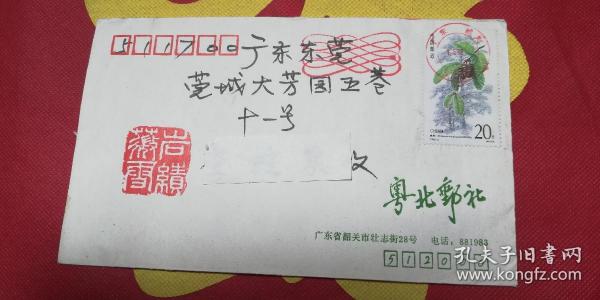 511700
广东东莞
莞城大芳园五巷
十一号
文
粤北邮社
广东省韶关市壮志街28号 电话:881983
5120
20分
孔夫子旧书网
www.kongfz.com